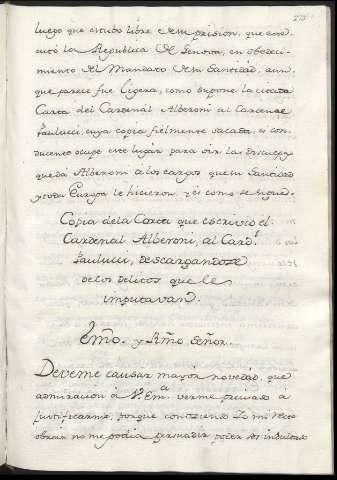 275
luego que estubo libre de su prision, que exe-
cutó la Republica de Genova, en obedeci-
miento del Mandato de su Santidad, aun
que parece fue ligera, como supone la citada
Carta del Cardenal Alberoni al Cardenal
Paulucci, cuya copia fielmente sacada, es con-
ducente ocupe este lugar para oir las disculpas
que dá Alberoni á los cargos que su Santidad
y toda Europa le hicieron, y es como se sigue.
Copia de la Carta que escrivio el
Cardenal Alberoni, al Card.l
Paulucci, descargandose
de los delitos que le
imputavan.
Emo. y Rmo. Señor.
Deveme causar mayor novedad, que
admiracion á V. Em.a verme precisado a
justificarme, porque conociendo Yo mi recto
obrar no me podia persuadir poder ser indultado